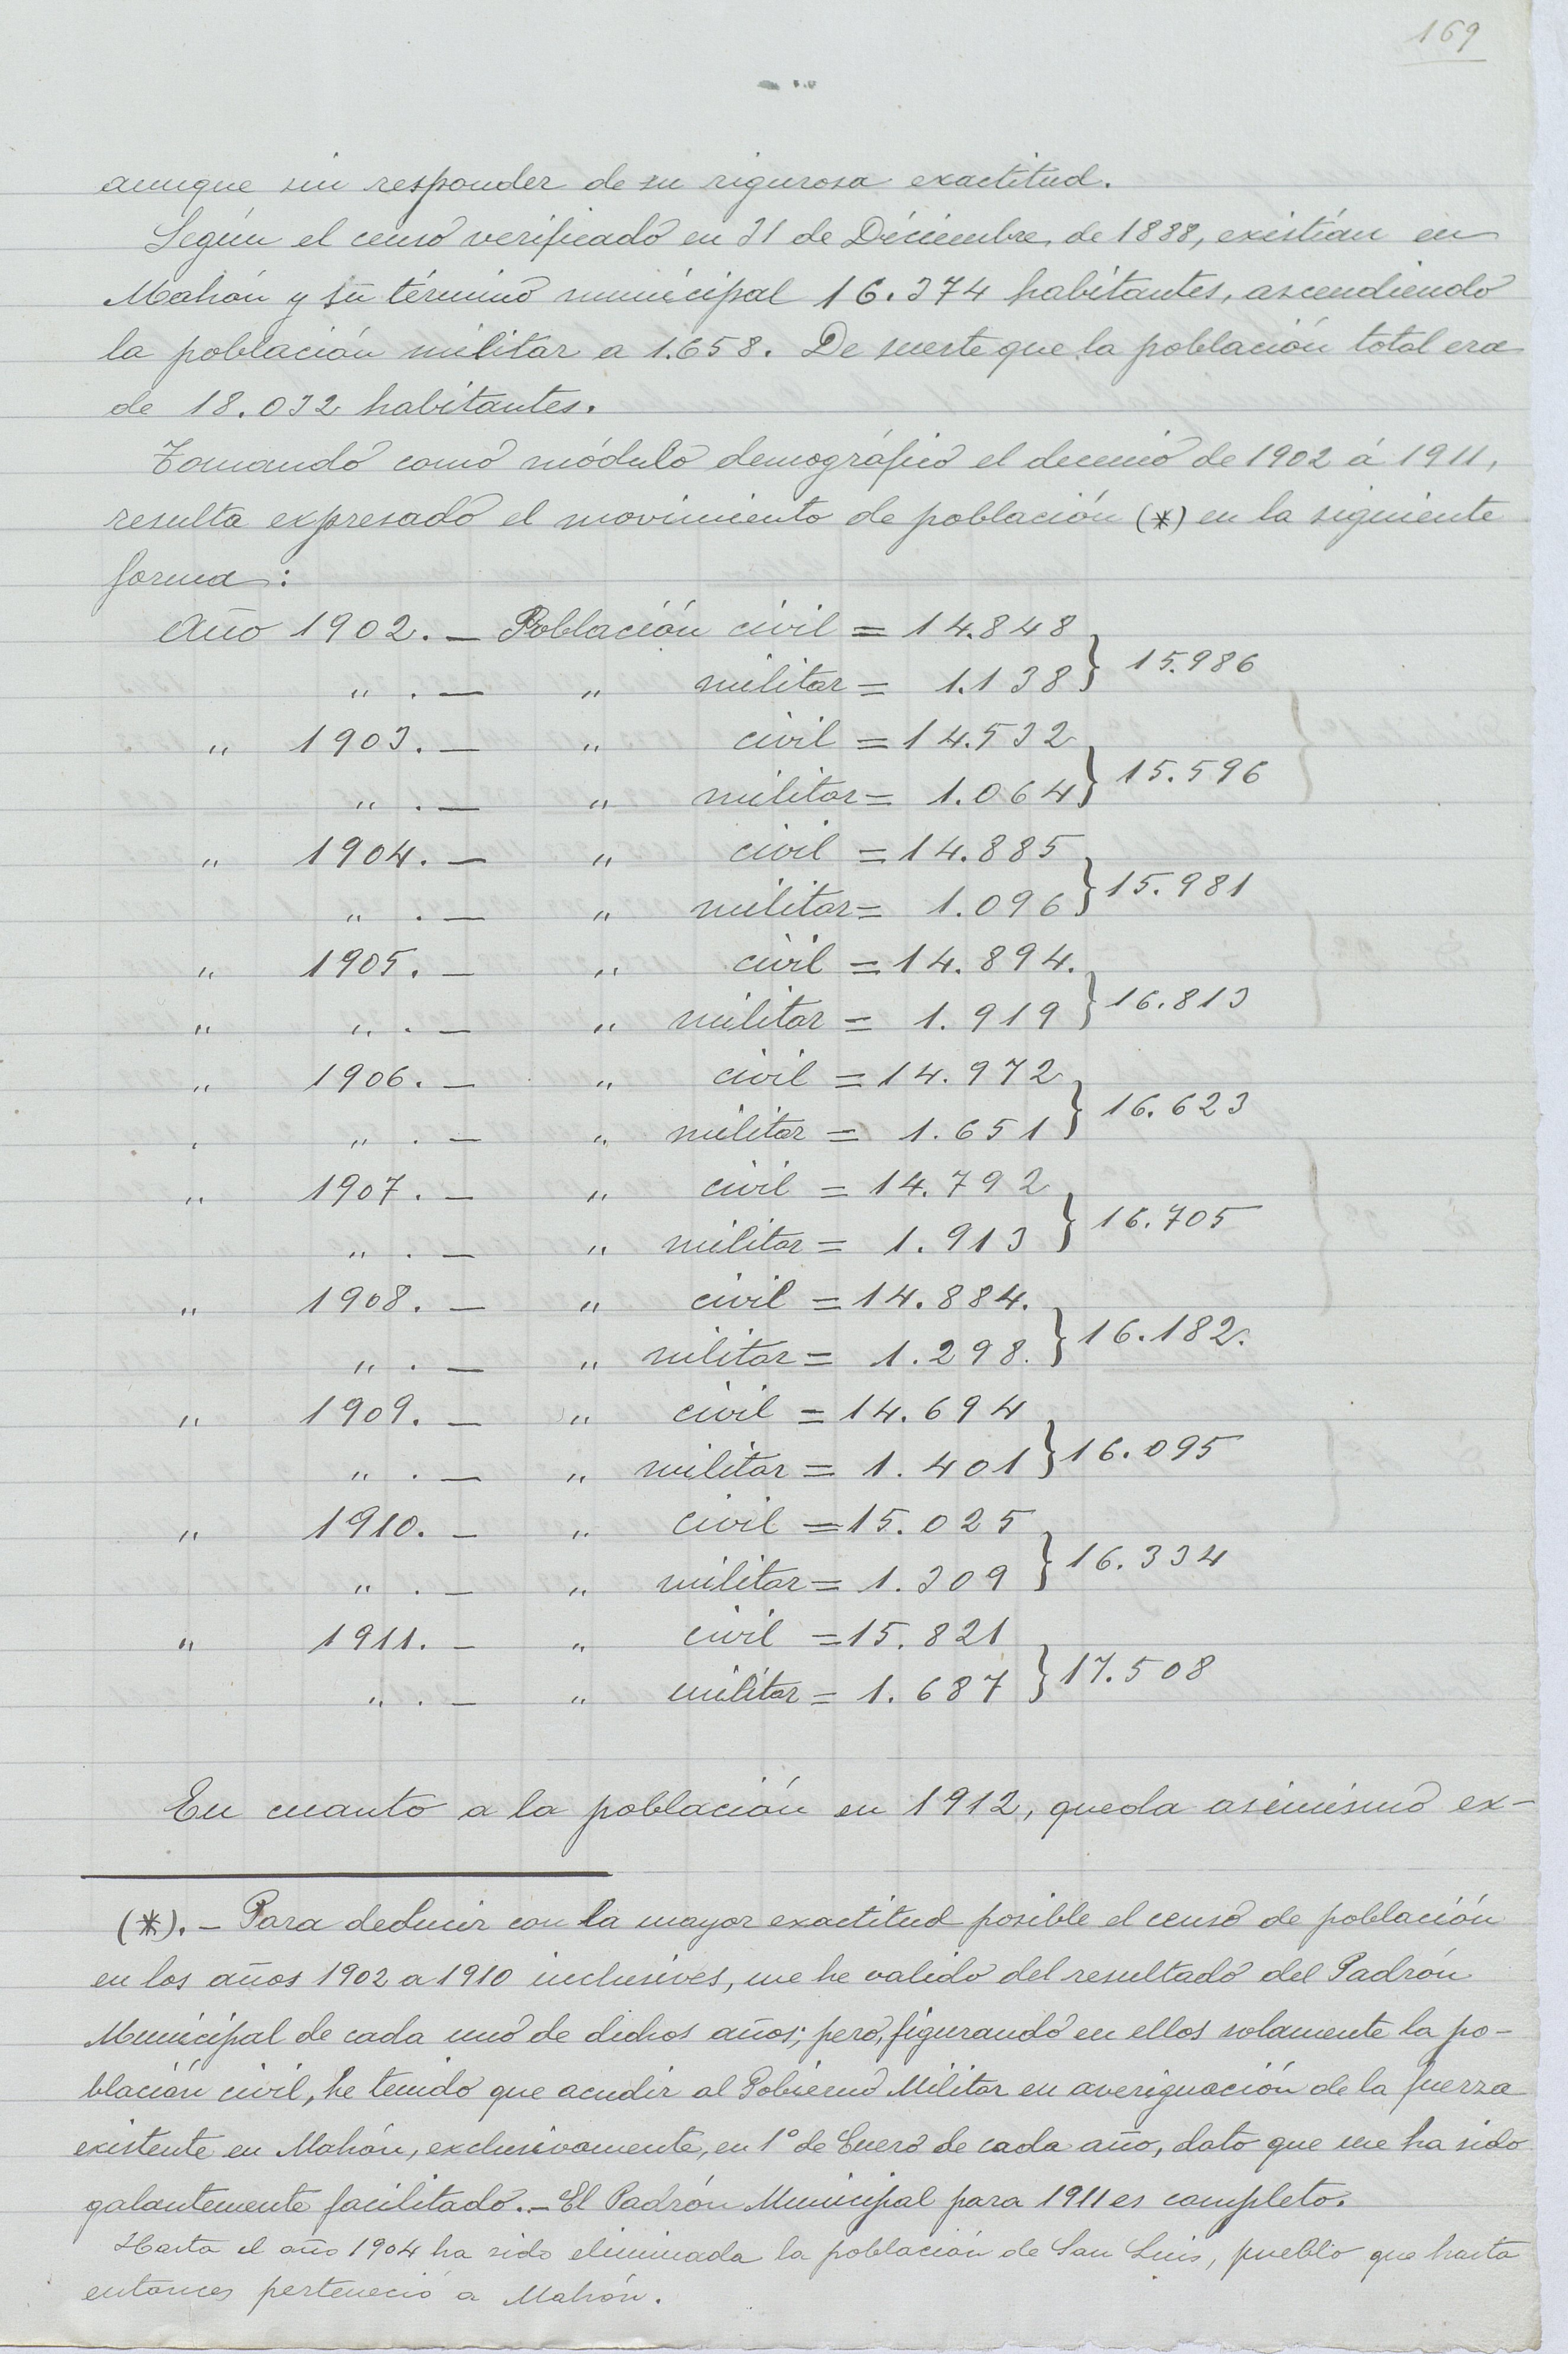 169
aunque sin responder de su rigurosa exactitud.
Según el censo verificado en 31 de Diciembre de 1888, existían en
Mahón y su término municipal 16.374 habitantes, ascendiendo
la población militar a 1.658. De suerte que la población total era
de 18.032 habitantes.
Tomando como módulo demográfico el decenio de 1902 á 1911,
resulta expresado el movimiento de población (*) en la siguiente
forma:
Año 1902. — Población civil = 14.848
" . — " militar = 1.138 } 15.986
" 1903. — " civil = 14.532
" . — " militar = 1.064 } 15.596
" 1904. — " civil = 14.885
" . — " militar = 1.096 } 15.981
" 1905. — " civil = 14.894.
" " . — " militar = 1.919 } 16.813
" 1906. — " civil = 14.972
" " . — " militar = 1.651 } 16.623
" 1907. — " civil = 14.792
" . — " militar = 1.913 } 16.705
" 1908. — " civil = 14.884.
" . — " militar = 1.298. } 16.182.
" 1909. — " civil = 14.694
" . — " militar = 1.401 } 16.095
" 1910. — " civil = 15.025
" . — " militar = 1.309 } 16.334
" 1911. — " civil = 15.821
" . — " militar = 1.687 } 17.508
En cuanto a la población en 1912, queda asimismo ex-
(*). — Para deducir con la mayor exactitud posible el censo de población
en los años 1902 a 1910 inclusives, me he valido del resultado del Padrón
Municipal de cada uno de dichos años; pero, figurando en ellos solamente la po-
blación civil, he tenido que acudir al Gobierno Militar en averiguación de la fuerza
existente en Mahón, exclusivamente, en 1º de Enero de cada año, dato que me ha sido
galantemente facilitado. — El Padrón Municipal para 1911 es completo.
Hasta el año 1904 ha sido eliminada la población de San Luis, pueblo que hasta
entonces perteneció a Mahón.